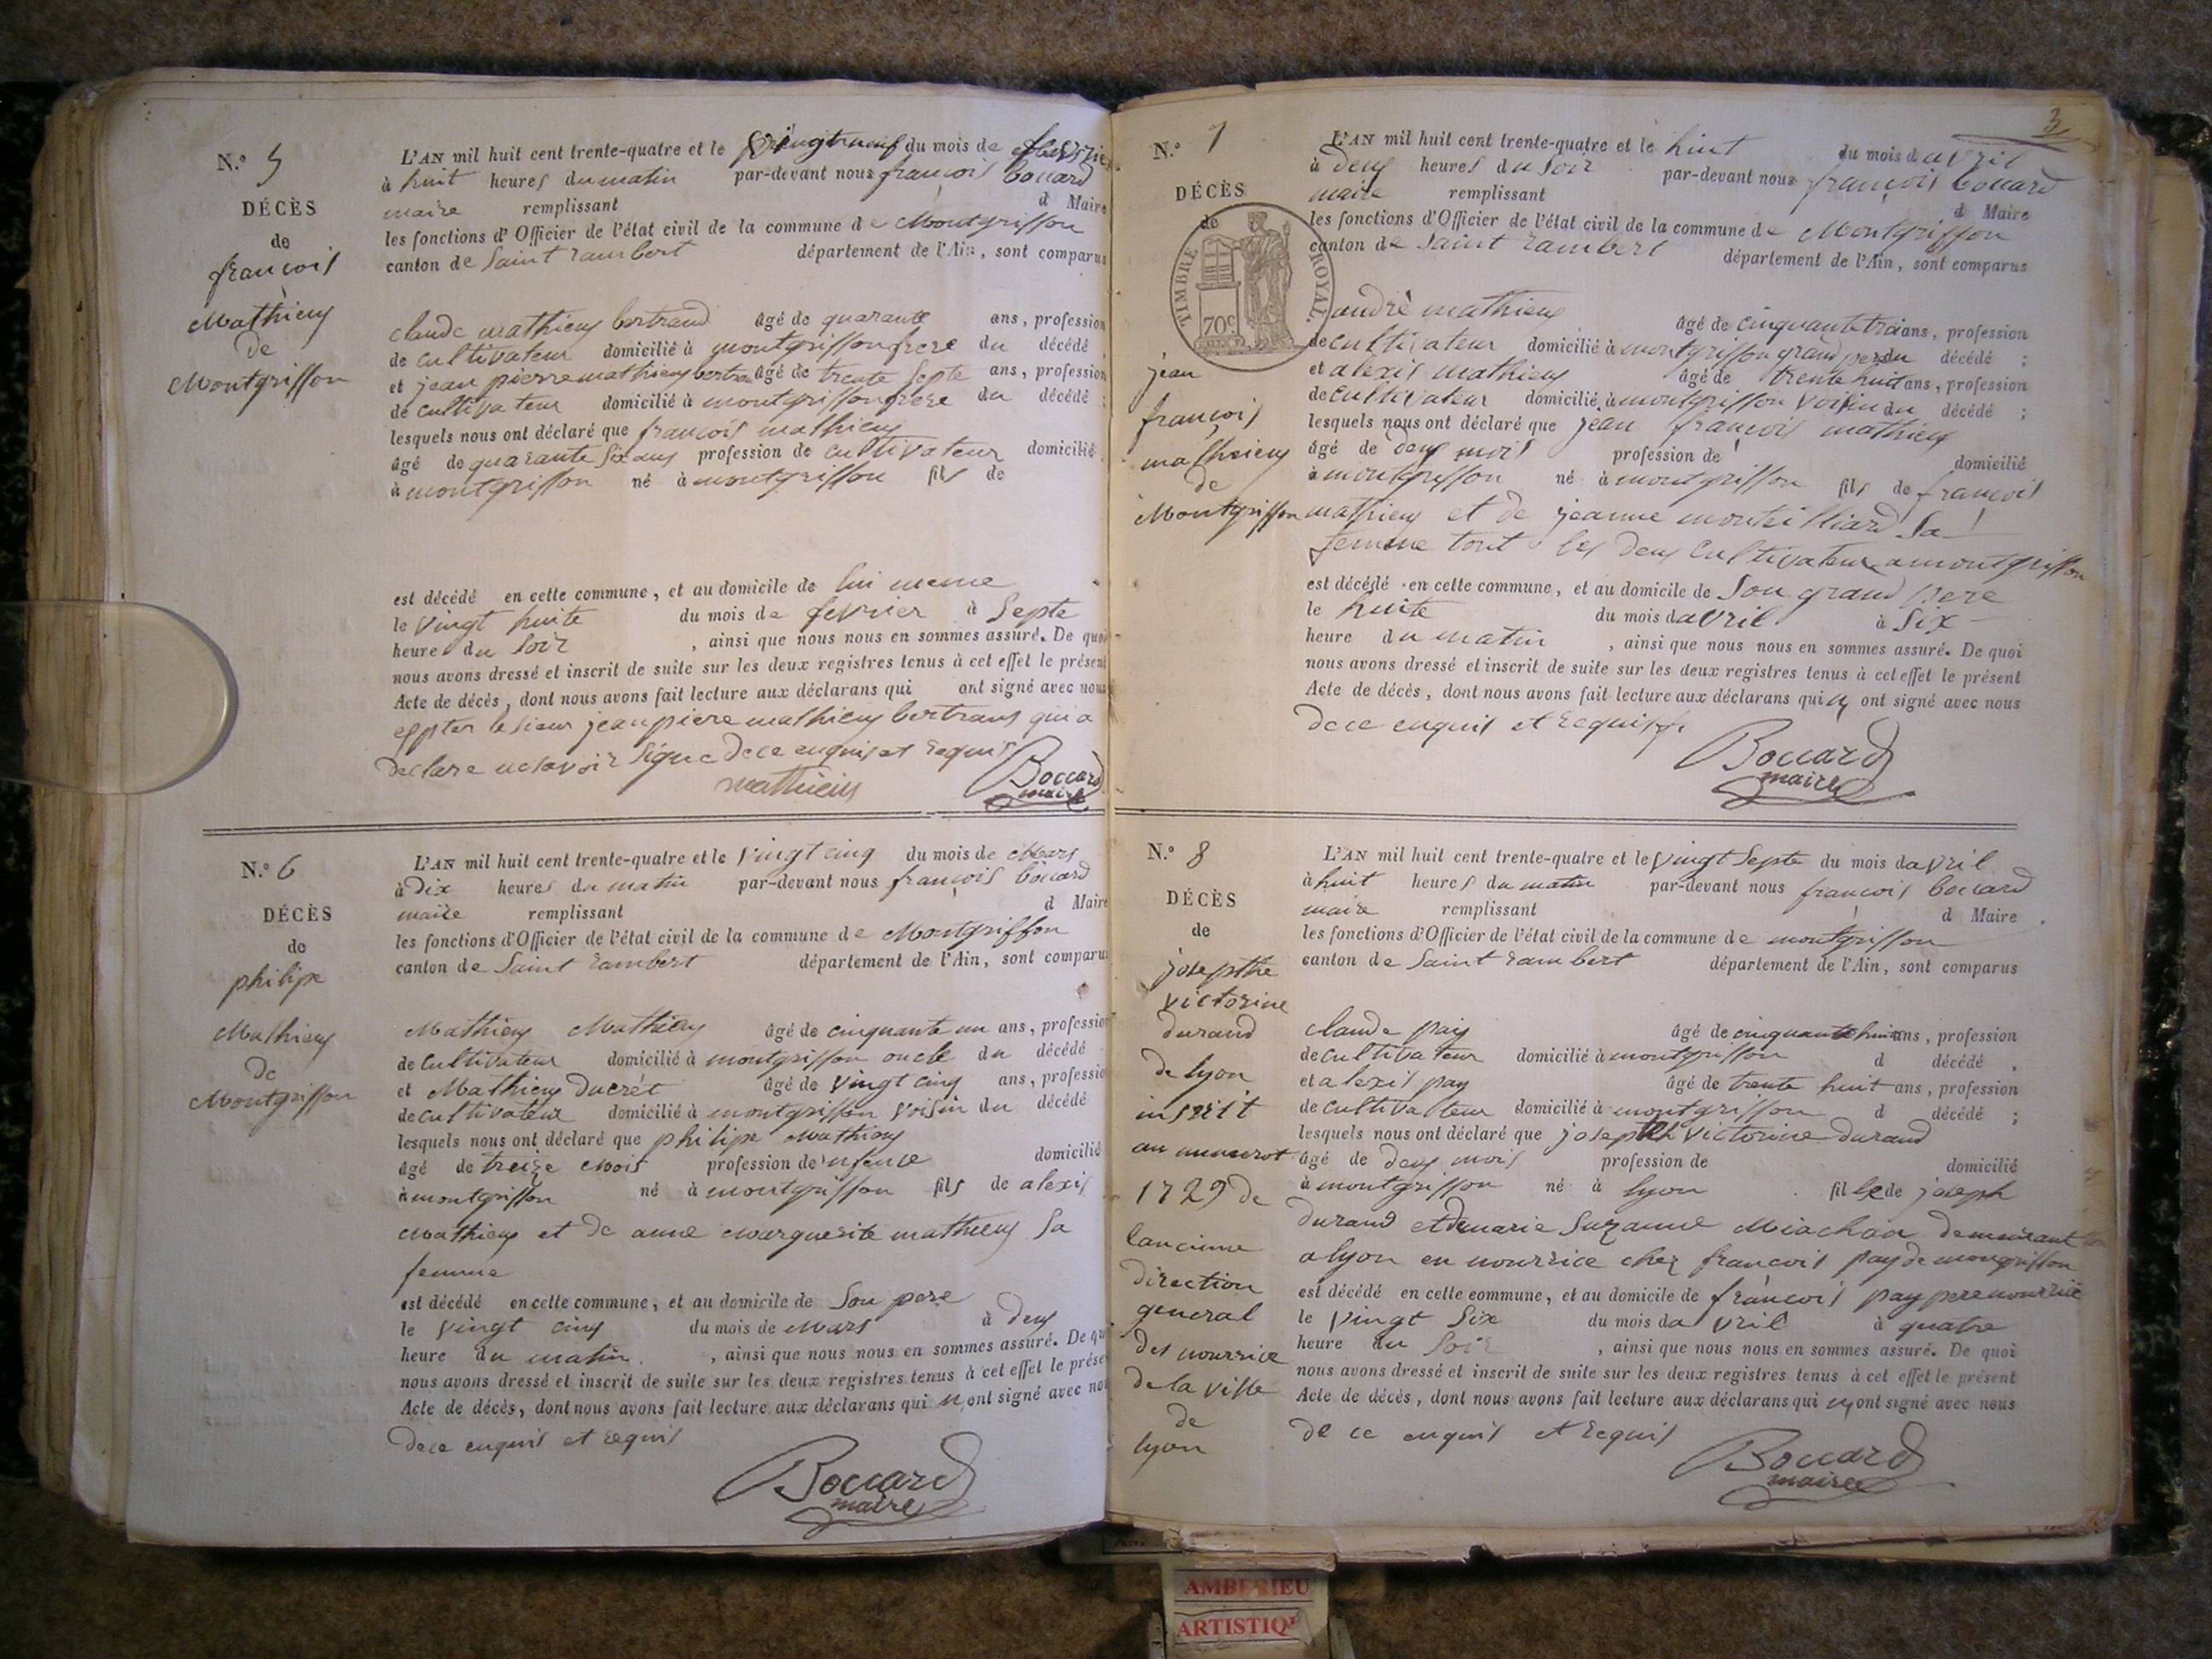 N.º 5
DÉCÈS
de
françois
Mathieux
de
Montgriffon
L'AN mil huit cent trente-quatre et le vingtneuf du mois de
à huit heures du matin par-devant nous françois bocard
maire remplissant d Maire
les fonctions d'Officier de l'état civil de la commune de Montgriffon
canton de Saint rambert département de l'Ain, sont comparus
claude mathieux bertrand âgé de quarante ans, profession
de cultivateur domicilié à montgriffon frere du décédé
et jean pierre mathieux bertran âgé de trente septe ans, profession
de cultivateur domicilié à montgriffon frere du décédé ;
lesquels nous ont déclaré que françois mathieux
âgé de quarante six ans profession de cultivateur domicilié
à montgriffon né à montgriffon fils de
est décédé en cette commune, et au domicile de lui meme
le vingt huite du mois de fevrier à Septe
heure du soir , ainsi que nous nous en sommes assuré. De quoi
nous avons dressé et inscrit de suite sur les deux registres tenus à cet effet le présent
Acte de décès, dont nous avons fait lecture aux déclarans qui ont signé avec nous
le sieur jean piere mathieux bertrans qui a
declare ne savoir signe dece enquis et requis
mathieus Boccard
maire
N.º 6
DÉCÈS
de
philipe
Mathieux
de
Montgriffon
L'AN mil huit cent trente-quatre et le vingt cinq du mois de Mars
à Dix heures du matin par-devant nous françois bocard
maire remplissant d Maire
les fonctions d'Officier de l'état civil de la commune de Montgriffon
canton de Saint rambert département de l'Ain, sont comparus
Mathieux Mathieux âgé de cinquante un ans, profession
de cultivateur domicilié à montgriffon oncle du décédé
et Mathieux Ducret âgé de vingt cinq ans, profession
de cultivateur domicilié à montgriffon voisin du décédé
lesquels nous ont déclaré que philipe Mathieux
âgé de treize mois profession de domicilié
à montgriffon né à montgriffon fils de alexis
Mathieux et de anne marguerite mathieux Sa
femme
est décédé en cette commune, et au domicile de Son pere
le vingt cinq du mois de Mars à deux
heure du matin , ainsi que nous nous en sommes assuré. De qu
nous avons dressé et inscrit de suite sur les deux registres tenus à cet effet le prése
Acte de décès, dont nous avons fait lecture aux déclarans qui n ont signé avec no
dece enquis et requis
Boccard
maire
3
N.º 7
DÉCÈS
de
TIMBRE ROYAL.
70c
jean
françois
mathieux
de
Montgriffon
L'AN mil huit cent trente-quatre et le huit du mois d avril
à deux heures du soir par-devant nous françois bocard
maire remplissant d Maire
les fonctions d'Officier de l'état civil de la commune de Montgriffon
canton de Saint rambert département de l'Ain, sont comparus
andrè mathieux âgé de cinquante trois ans, profession
de cultivateur domicilié à montgriffon grand pere du décédé ;
et alexis mathieux âgé de trente huit ans, profession
de cultivateur domicilié à montgriffon voisin du décédé ;
lesquels nous ont déclaré que jean françois mathieux
âgé de deux mois profession de domicilié
à montgriffon né à montgriffon fils de françois
mathieux et de jeanne monteilliard Sa
femme tout les deux cultivateur a montgriffon
est décédé en cette commune, et au domicile de Son grand pere
le huite du mois d avril à Six
heure du matin , ainsi que nous nous en sommes assuré. De quoi
nous avons dressé et inscrit de suite sur les deux registres tenus à cet effet le présent
Acte de décès, dont nous avons fait lecture aux déclarans qui n ont signé avec nous
dece enquis et requis
Boccard
maire
N.º 8
DÉCÈS
de
josepthe
victorine
durand
de lyon
inscrit
au numerot
1729 de
lancienne
direction
general
des nourrice
de la ville
de
lyon
L'AN mil huit cent trente-quatre et le vingt Septe du mois d avril
à huit heures du matin par-devant nous françois bocard
maire remplissant d Maire
les fonctions d'Officier de l'état civil de la commune de montgriffon
canton de Saint rambert département de l'Ain, sont comparus
claude pay âgé de cinquante huit ans, profession
de cultivateur domicilié à montgriffon d décédé ,
et alexis pay âgé de trente huit ans, profession
de cultivateur domicilié à montgriffon d décédé ;
lesquels nous ont déclaré que victorine durand
âgé de deux mois profession de domicilié
à montgriffon né à lyon fille de joseph
durand et de marie Suzanne demeurant
a lyon en nourrice chez françois pay de mongriffon
est décédé en cette commune, et au domicile de françois pay pere nourricie
le vingt Six du mois d avril à quatre
heure du Soir , ainsi que nous nous en sommes assuré. De quoi
nous avons dressé et inscrit de suite sur les deux registres tenus à cet effet le présent
Acte de décès, dont nous avons fait lecture aux déclarans qui n ont signé avec nous
de ce enquis et requis
Boccard
maire
AMBERIEU
ARTISTIQU